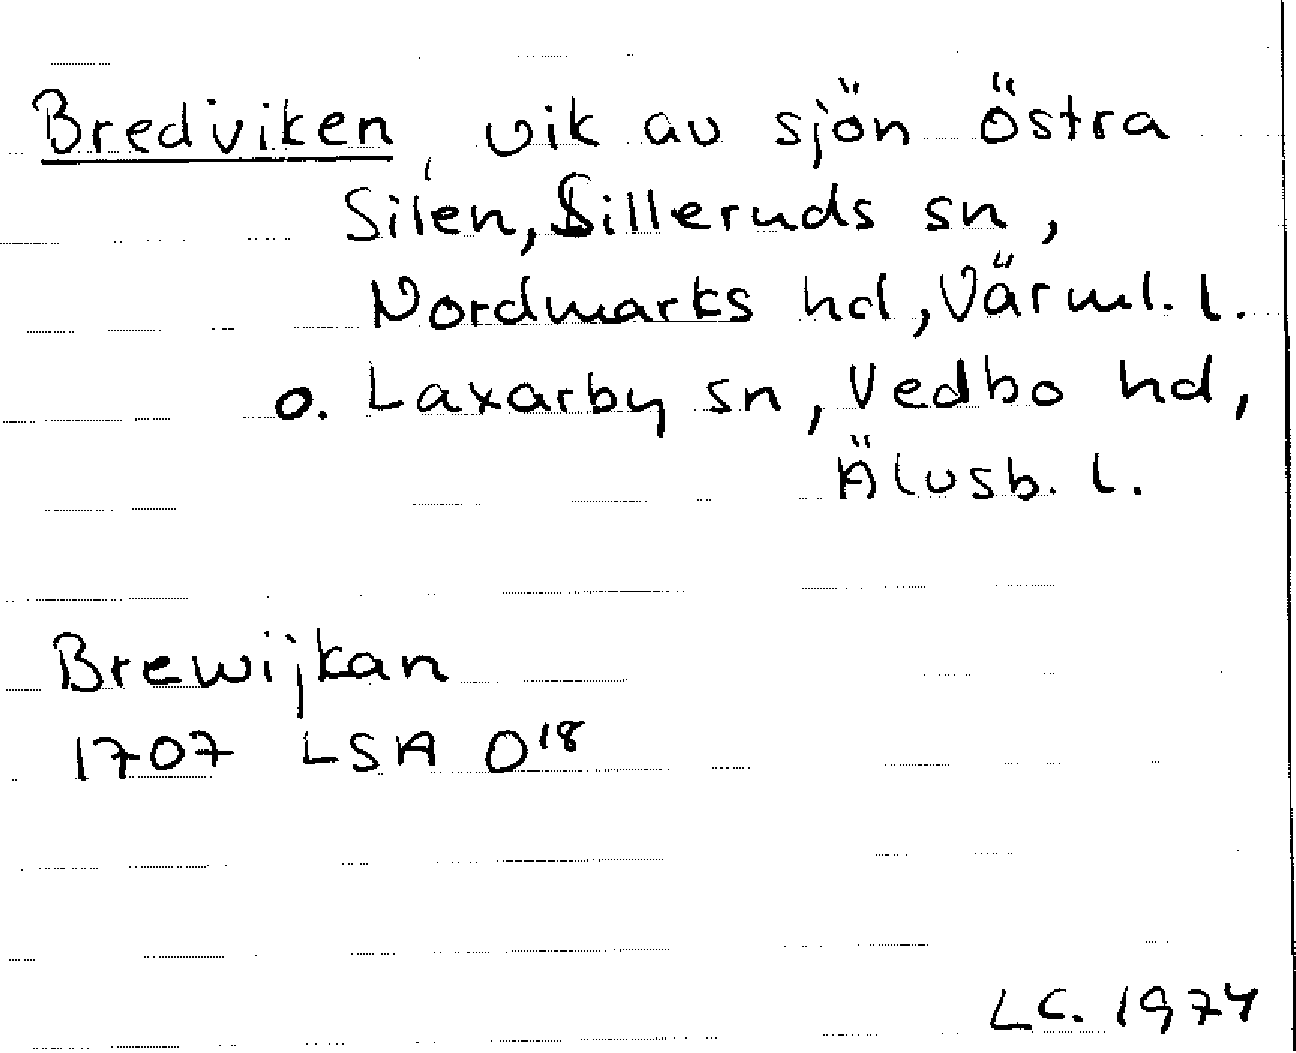 Bredviken, vik av sjön östra
Silen, Silleruds sn,
Nordmarks hd, Värml. l.
o. Laxarby sn, Vedbo hd,
Älvsb. l.
Brewijkan
1707 LSA O18
LC. 1974